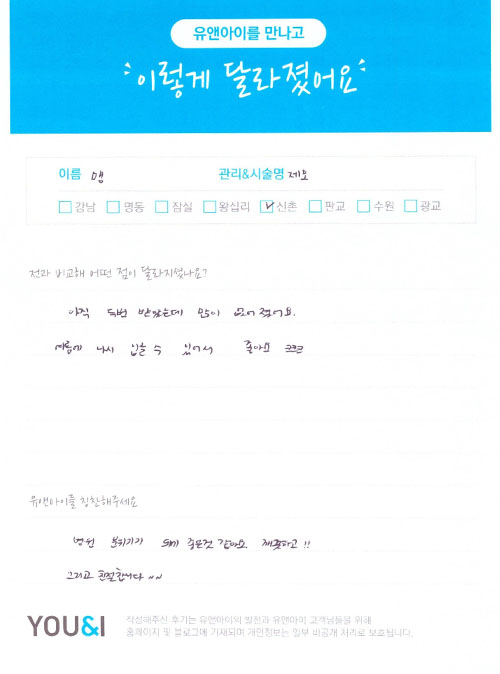 유앤아이를 만나고
이렇게 달라졌어요
이름 맹 관리&시술명 제모
강남 명동 잠실 왕십리 신촌 판교 수원 광교
전과 비교해 어떤 점이 달라지셨나요?
아직 두번 받았는데 많이 없어졌어요.
여름에 나시 입을 수 있어서 좋아요 ㅋㅋㅋ
유앤아이를 칭찬해주세요
병원 분위기가 되게 좋은것 같아요. 깨끗하고 !!
그리고 친절합니다 ~~
YOU&I
작성해주신 후기는 유앤아이의 발전과 유앤아이 고객님들을 위해
홈페이지 및 블로그에 기재되며 개인정보는 일부 비공개 처리로 보호됩니다.